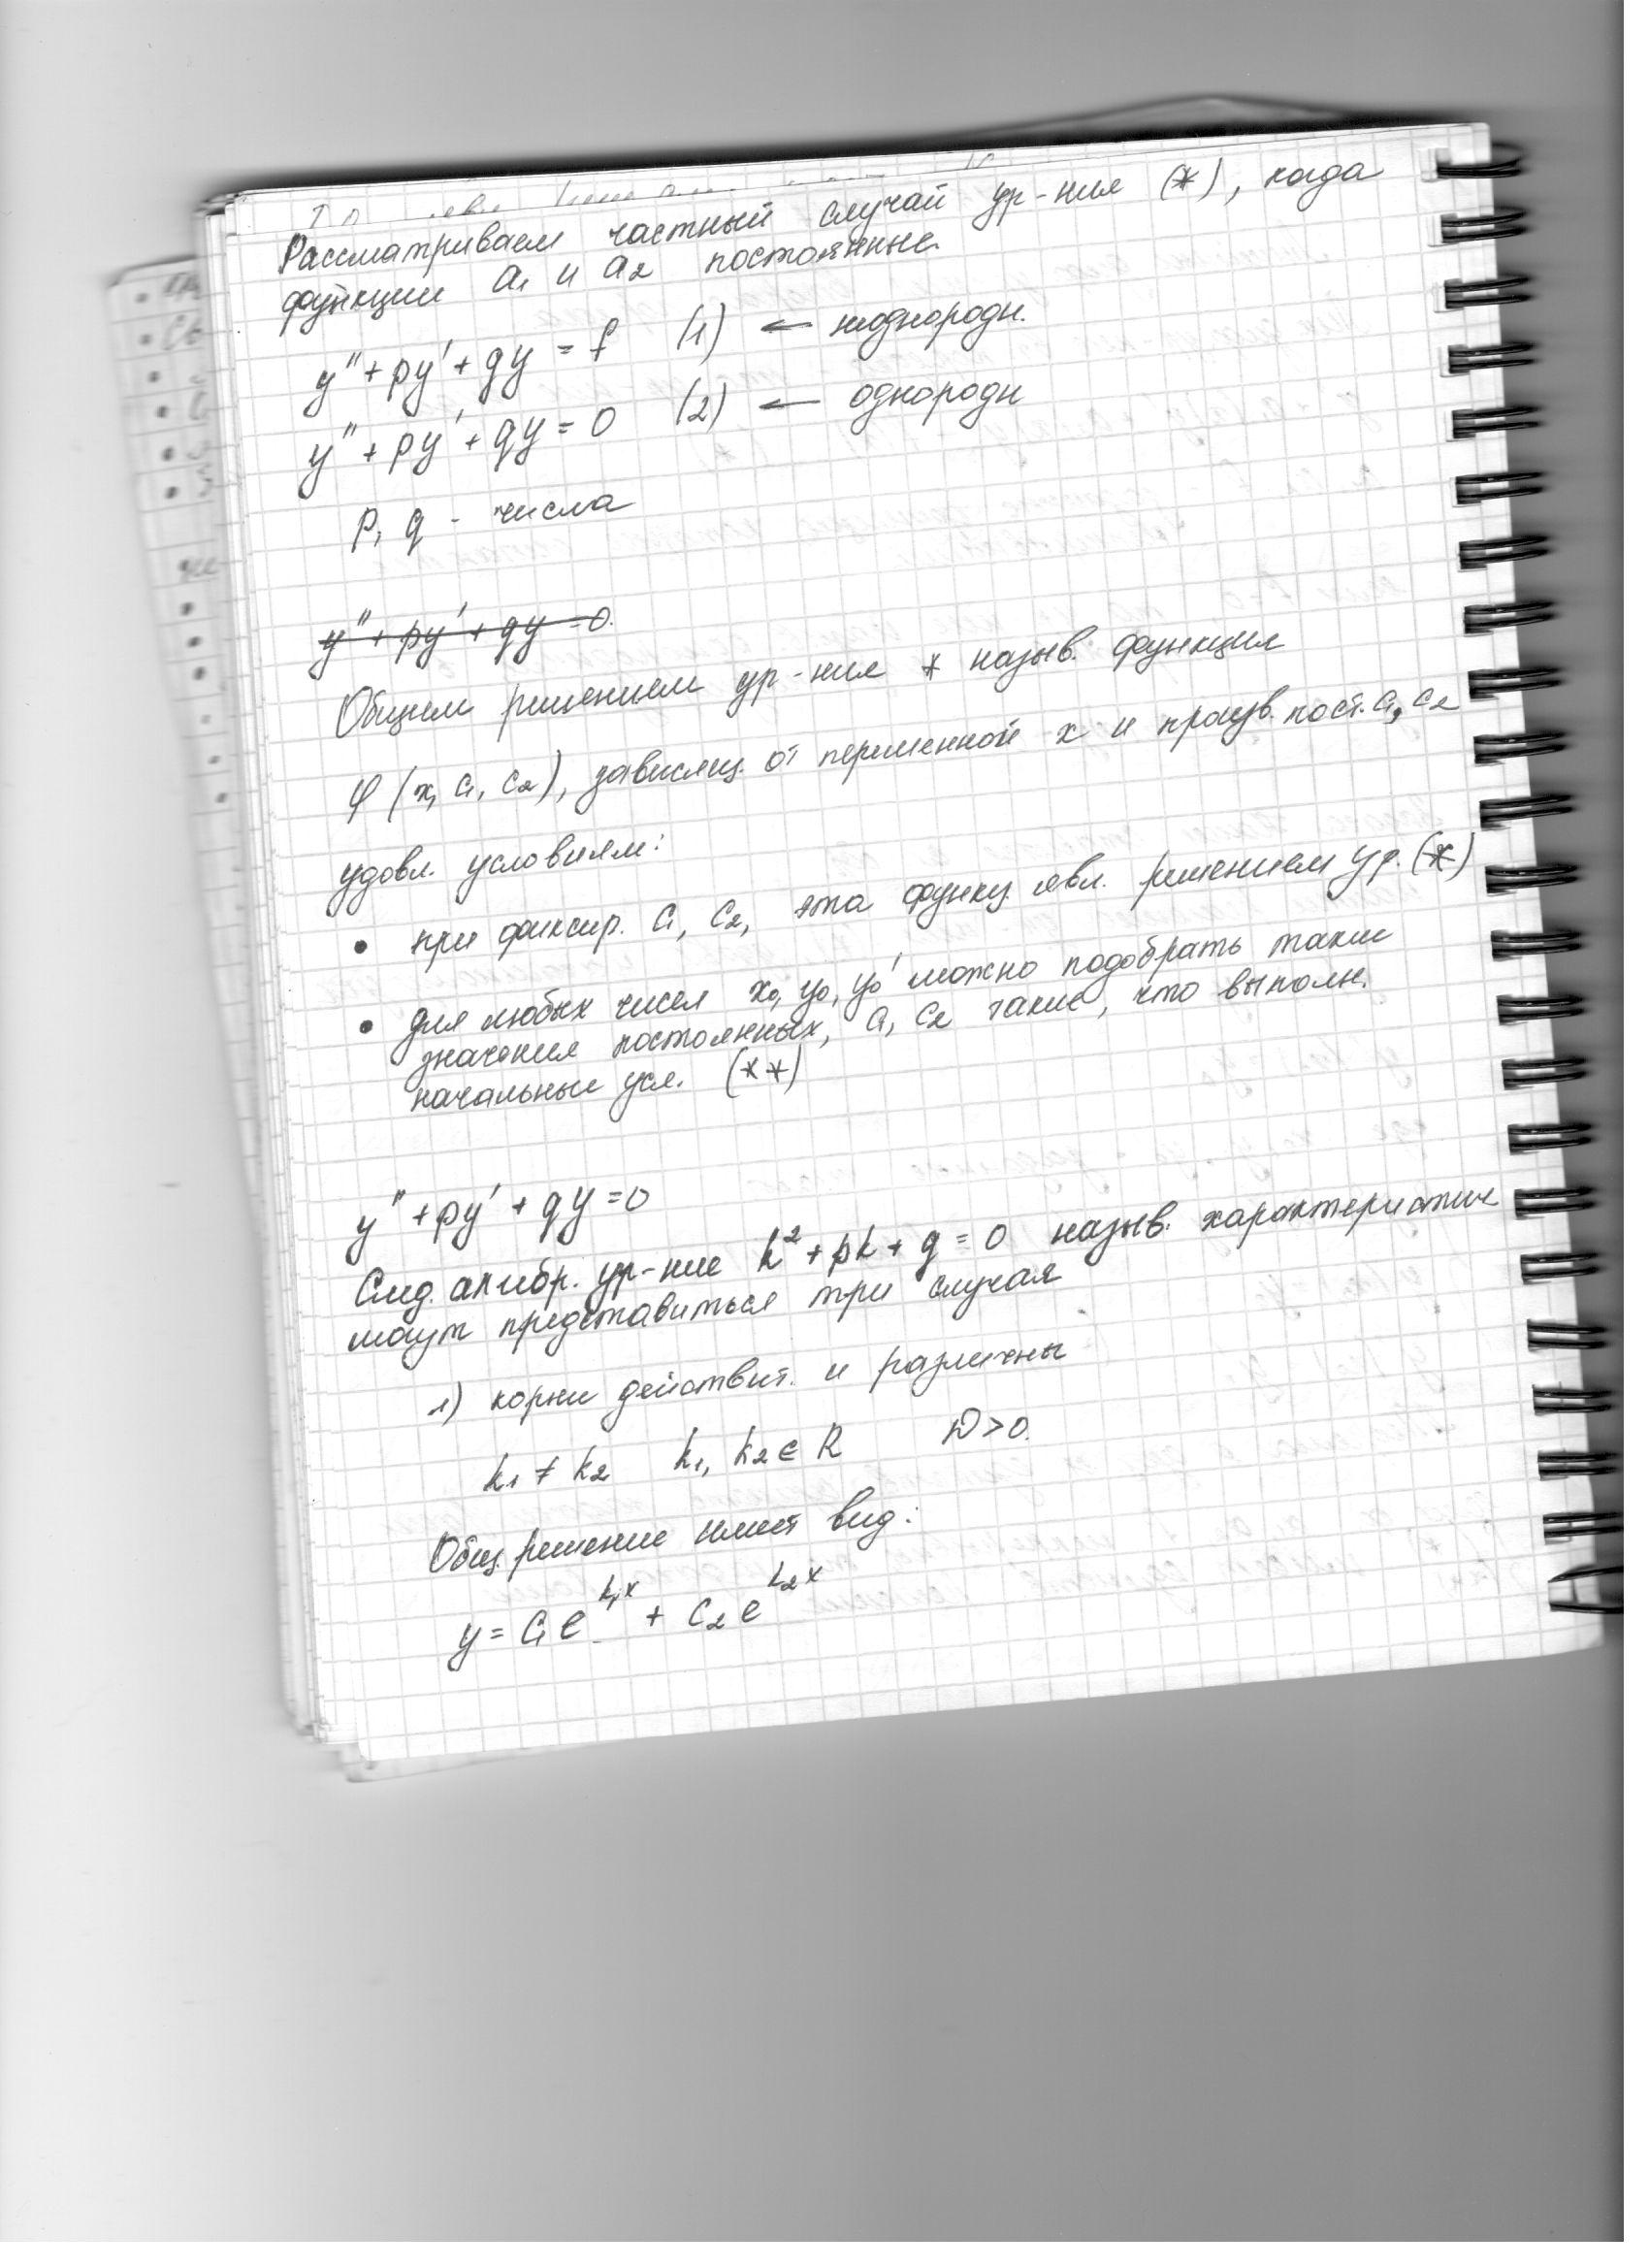 Рассматриваем частный случай ур-ния (*), когда
функции a₁ и a₂ постоянные.
y'' + py' + qy = f (1) ← неоднородн.
y'' + py' + qy = 0 (2) ← однородн
p, q - числа
y'' + py' + qy = 0.
Общим решением ур-ния * назыв. функция
φ (x, c₁, c₂), зависящ. от переменной x и произв. пост. c₁, c₂
удовл. условиям:
• при фиксир. c₁, c₂, эта функц. явл. решением ур. (*)
• для любых чисел x₀, y₀, y₀' можно подобрать такие
значения постоянных, c₁, c₂ такие, что выполн.
начальные усл. (**)
y'' + py' + qy = 0
След. алгебр. ур-ние k² + pk + q = 0 назыв. характеристич
могут представиться три случая
1) корни действит. и различны
k₁ ≠ k₂ k₁, k₂ ∈ R D > 0.
Общ. решение имеет вид:
y = c₁ e^{k₁x} + c₂ e^{k₂x}